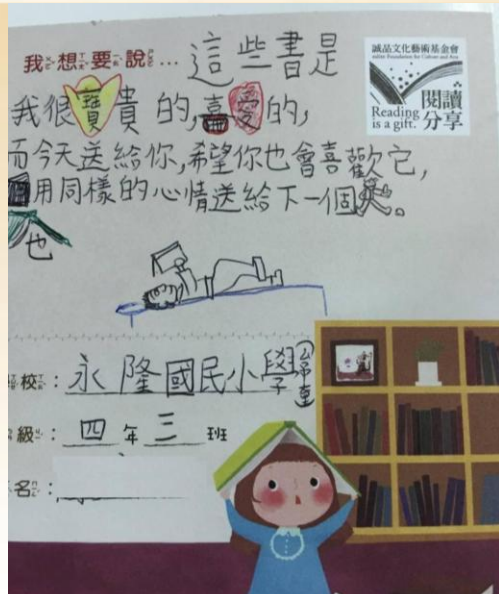 我想要說... 這些書是
我很寶貴的,喜愛的,
而今天送給你,希望你也會喜歡它,
用同樣的心情送給下一個人。
也
誠品文化藝術基金會
eslite Foundation for Culture and Arts
Reading is a gift.
閱讀分享
校:永隆國民小學
級:四年三班
名: